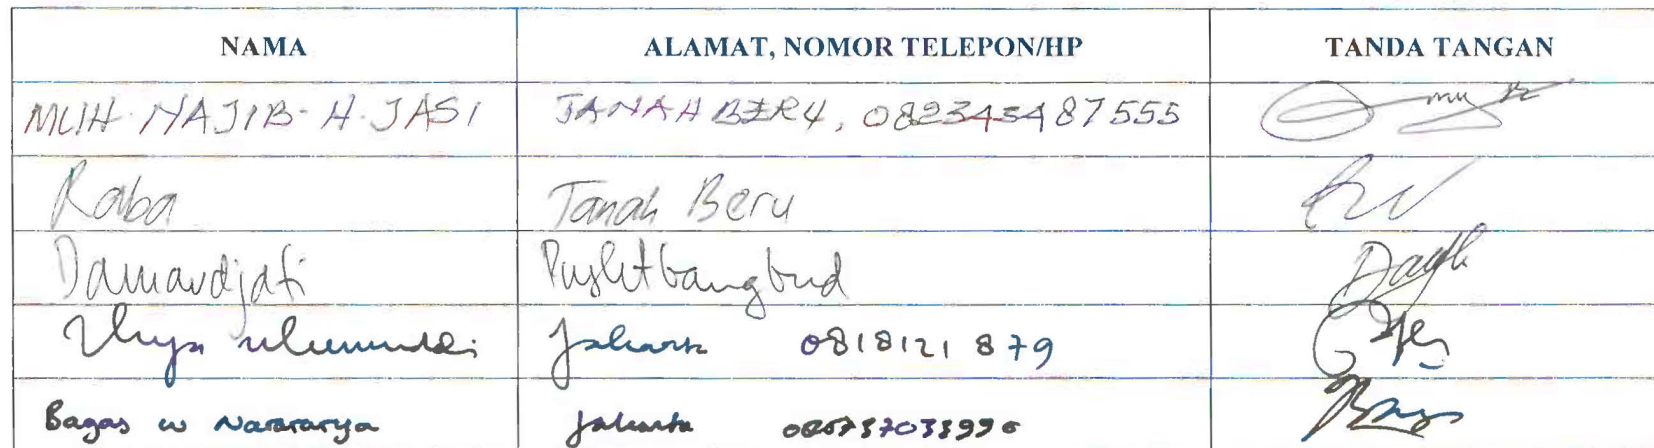 NAMA ALAMAT, NOMOR TELEPON/HP TANDA TANGAN
MUH. NAJIB. H. JASI TANAH BERU, 082343487555
Raba Tanah Beru
Damardjati Puslitbangbud
Jakarta 0818121 879
Bagas w Nararya Jakarta